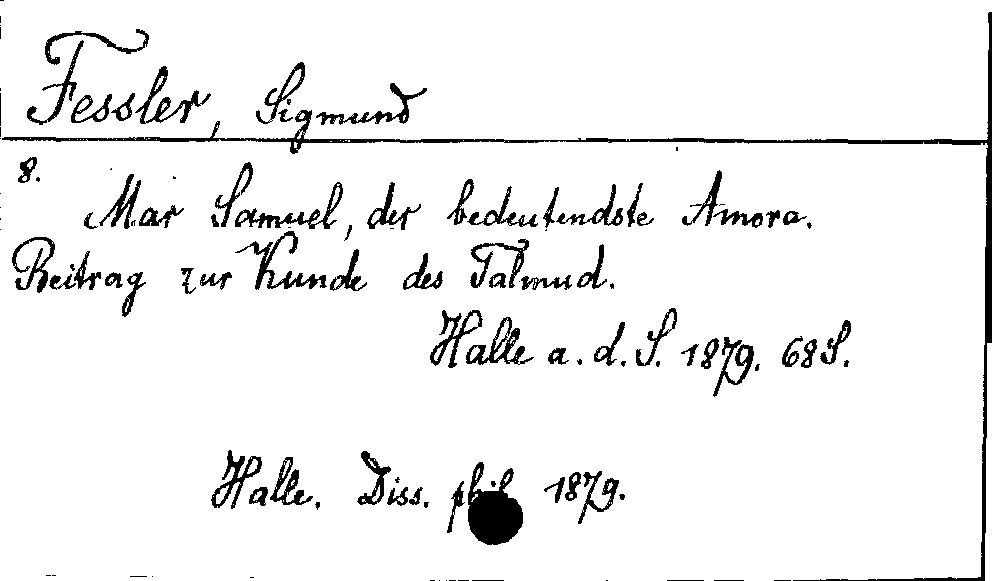 Fessler, Sigmund
8.
Mar Samuel, der bedeutendste Amora.
Beitrag zur Kunde des Talmud.
Halle a. d. S. 1879. 68 S.
Halle. Diss. phil. 1879.